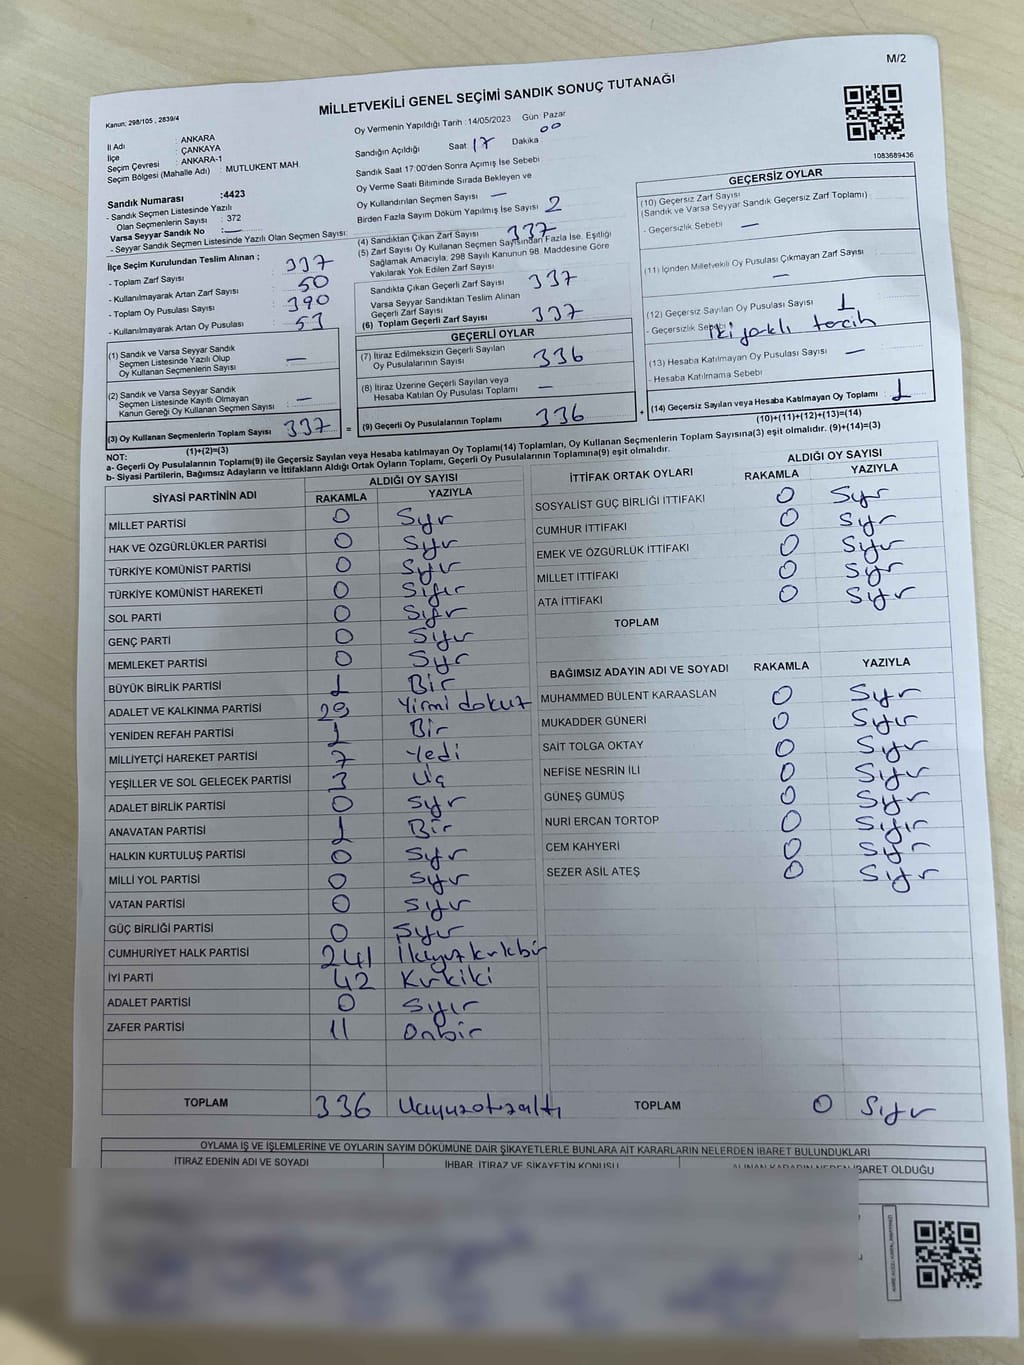 M/2
MİLLETVEKİLİ GENEL SEÇİMİ SANDIK SONUÇ TUTANAĞI
Kanun: 298/105 , 2839/4
İl Adı : ANKARA
İlçe : ÇANKAYA
Seçim Çevresi : ANKARA-1
Seçim Bölgesi (Mahalle Adı) : MUTLUKENT MAH.
Sandık Numarası :4423
- Sandık Seçmen Listesinde Yazılı
Olan Seçmenlerin Sayısı : 372
Varsa Seyyar Sandık No : —
- Seyyar Sandık Seçmen Listesinde Yazılı Olan Seçmen Sayısı:
İlçe Seçim Kurulundan Teslim Alınan ;
- Toplam Zarf Sayısı : 337
- Kullanılmayarak Artan Zarf Sayısı : 50
- Toplam Oy Pusulası Sayısı : 390
- Kullanılmayarak Artan Oy Pusulası : 53
Oy Vermenin Yapıldığı Tarih : 14/05/2023 Gün Pazar
Sandığın Açıldığı Saat 17 Dakika 00
Sandık Saat 17:00'den Sonra Açımış İse Sebebi
Oy Verme Saati Bitiminde Sırada Bekleyen ve
Oy Kullandırılan Seçmen Sayısı —
Birden Fazla Sayım Döküm Yapılmış İse Sayısı 2
1083689436
(1) Sandık ve Varsa Seyyar Sandık
Seçmen Listesinde Yazılı Olup
Oy Kullanan Seçmenlerin Sayısı —
(2) Sandık ve Varsa Seyyar Sandık
Seçmen Listesinde Kayıtlı Olmayan
Kanun Gereği Oy Kullanan Seçmen Sayısı : —
(3) Oy Kullanan Seçmenlerin Toplam Sayısı 337
(1)+(2)=(3)
=
(4) Sandıktan Çıkan Zarf Sayısı 337
(5) Zarf Sayısı Oy Kullanan Seçmen Sayısından Fazla İse, Eşitliği
Sağlamak Amacıyla, 298 Sayılı Kanunun 98. Maddesine Göre
Yakılarak Yok Edilen Zarf Sayısı
Sandıkta Çıkan Geçerli Zarf Sayısı 337
Varsa Seyyar Sandıktan Teslim Alınan
Geçerli Zarf Sayısı
(6) Toplam Geçerli Zarf Sayısı 337
GEÇERLİ OYLAR
(7) İtiraz Edilmeksizin Geçerli Sayılan
Oy Pusulalarının Sayısı 336
(8) İtiraz Üzerine Geçerli Sayılan veya
Hesaba Katılan Oy Pusulası Toplamı —
(9) Geçerli Oy Pusulalarının Toplamı 336
+
GEÇERSİZ OYLAR
(10) Geçersiz Zarf Sayısı
(Sandık ve Varsa Seyyar Sandık Geçersiz Zarf Toplamı)
- Geçersizlik Sebebi : —
(11) İçinden Milletvekili Oy Pusulası Çıkmayan Zarf Sayısı
—
(12) Geçersiz Sayılan Oy Pusulası Sayısı 1
- Geçersizlik Sebebi İki farklı tercih
(13) Hesaba Katılmayan Oy Pusulası Sayısı —
- Hesaba Katılmama Sebebi
(14) Geçersiz Sayılan veya Hesaba Katılmayan Oy Toplamı : 1
(10)+(11)+(12)+(13)=(14)
NOT:
a- Geçerli Oy Pusulalarının Toplamı(9) ile Geçersiz Sayılan veya Hesaba katılmayan Oy Toplamı(14) Toplamları, Oy Kullanan Seçmenlerin Toplam Sayısına(3) eşit olmalıdır. (9)+(14)=(3)
b- Siyasi Partilerin, Bağımsız Adayların ve İttifakların Aldığı Ortak Oyların Toplamı, Geçerli Oy Pusulalarının Toplamına(9) eşit olmalıdır.
SİYASİ PARTİNİN ADI ALDIĞI OY SAYISI
RAKAMLA YAZIYLA
MİLLET PARTİSİ 0 Sıfır
HAK VE ÖZGÜRLÜKLER PARTİSİ 0 Sıfır
TÜRKİYE KOMÜNİST PARTİSİ 0 Sıfır
TÜRKİYE KOMÜNİST HAREKETİ 0 Sıfır
SOL PARTİ 0 Sıfır
GENÇ PARTİ 0 Sıfır
MEMLEKET PARTİSİ 0 Sıfır
BÜYÜK BİRLİK PARTİSİ 1 Bir
ADALET VE KALKINMA PARTİSİ 29 Yirmi dokuz
YENİDEN REFAH PARTİSİ 1 Bir
MİLLİYETÇİ HAREKET PARTİSİ 7 Yedi
YEŞİLLER VE SOL GELECEK PARTİSİ 3 Üç
ADALET BİRLİK PARTİSİ 0 Sıfır
ANAVATAN PARTİSİ 1 Bir
HALKIN KURTULUŞ PARTİSİ 0 Sıfır
MİLLİ YOL PARTİSİ 0 Sıfır
VATAN PARTİSİ 0 Sıfır
GÜÇ BİRLİĞİ PARTİSİ 0 Sıfır
CUMHURİYET HALK PARTİSİ 241 İkiyüzkırkbir
İYİ PARTİ 42 Kırkiki
ADALET PARTİSİ 0 Sıfır
ZAFER PARTİSİ 11 Onbir
TOPLAM 336 Üçyüzotuzaltı
İTTİFAK ORTAK OYLARI ALDIĞI OY SAYISI
RAKAMLA YAZIYLA
SOSYALİST GÜÇ BİRLİĞİ İTTİFAKI 0 Sıfır
CUMHUR İTTİFAKI 0 Sıfır
EMEK VE ÖZGÜRLÜK İTTİFAKI 0 Sıfır
MİLLET İTTİFAKI 0 Sıfır
ATA İTTİFAKI 0 Sıfır
TOPLAM
BAĞIMSIZ ADAYIN ADI VE SOYADI RAKAMLA YAZIYLA
MUHAMMED BÜLENT KARAASLAN 0 Sıfır
MUKADDER GÜNERİ 0 Sıfır
SAİT TOLGA OKTAY 0 Sıfır
NEFİSE NESRİN İLİ 0 Sıfır
GÜNEŞ GÜMÜŞ 0 Sıfır
NURİ ERCAN TORTOP 0 Sıfır
CEM KAHYERİ 0 Sıfır
SEZER ASİL ATEŞ 0 Sıfır
TOPLAM 0 Sıfır
OYLAMA İŞ VE İŞLEMLERİNE VE OYLARIN SAYIM DÖKÜMÜNE DAİR ŞİKAYETLERLE BUNLARA AİT KARARLARIN NELERDEN İBARET BULUNDUKLARI
İTİRAZ EDENİN ADI VE SOYADI İHBAR, İTİRAZ VE ŞİKAYETİN KONUSU ALINAN KARARIN NEDEN İBARET OLDUĞU